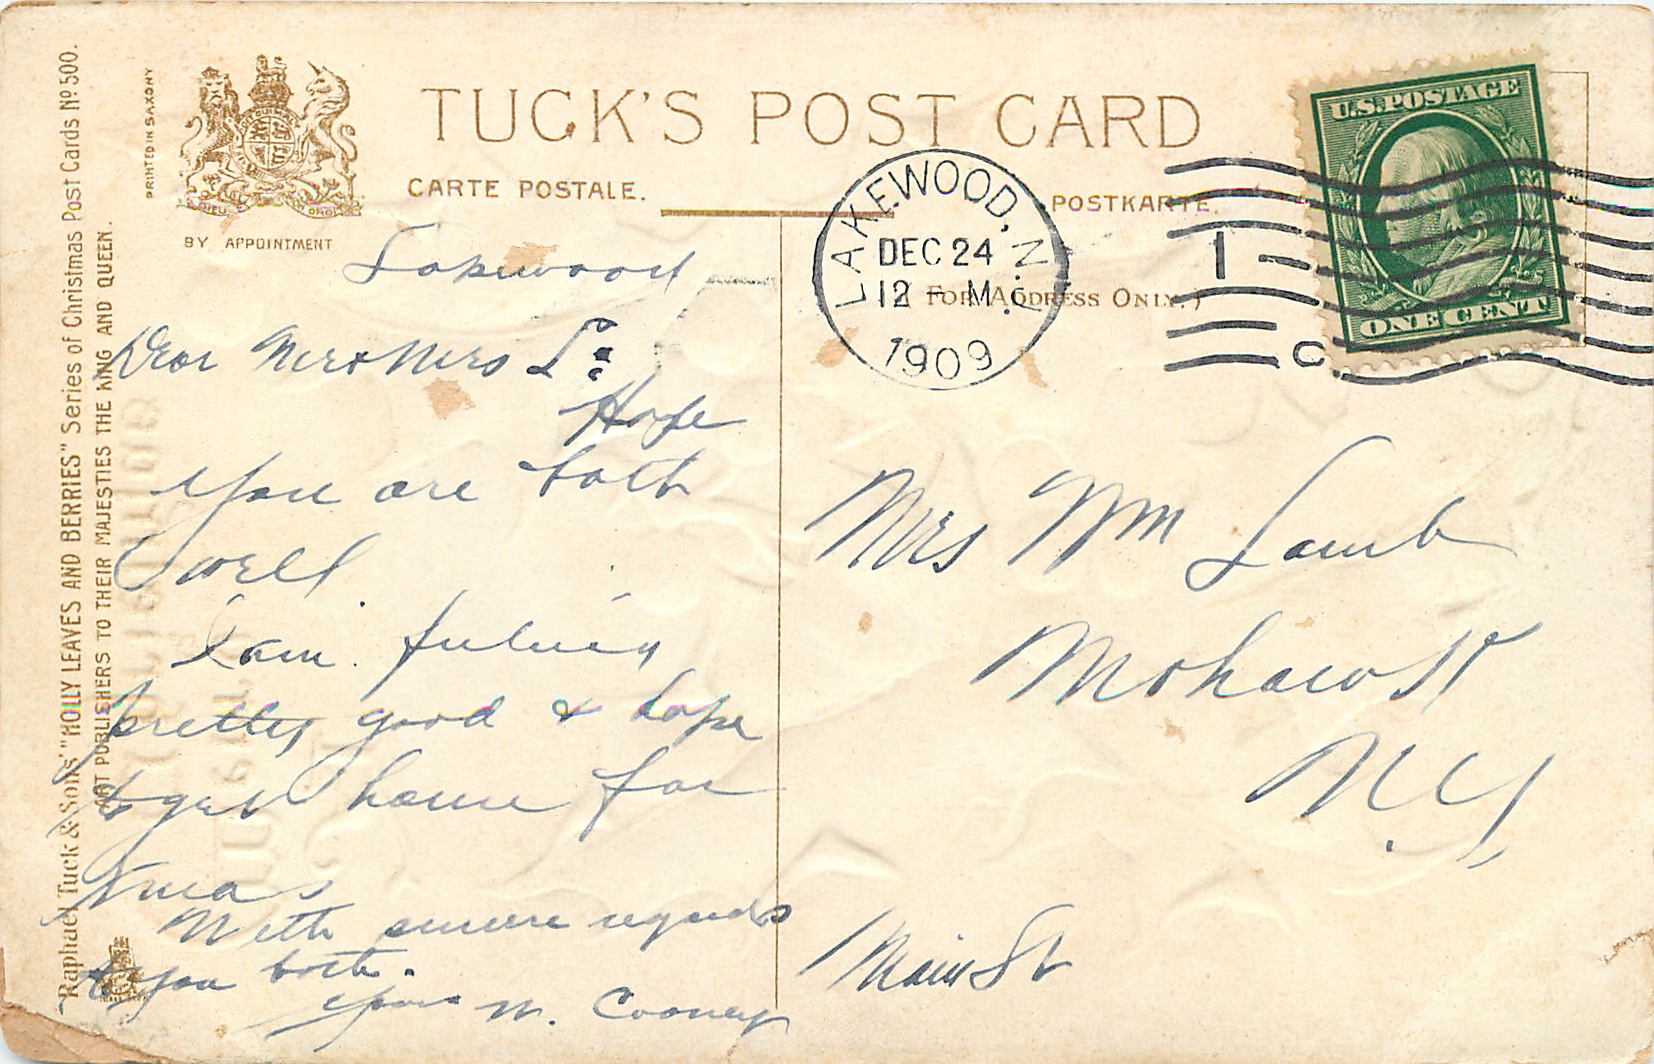 Raphael Tuck & Sons' "HOLLY LEAVES AND BERRIES" Series of Christmas Post Cards No. 500.
ART PUBLISHERS TO THEIR MAJESTIES THE KING AND QUEEN.
PRINTED IN SAXONY
BY APPOINTMENT
TUCK'S POST CARD
CARTE POSTALE.
POSTKARTE.
(FOR ADDRESS ONLY.)
LAKEWOOD, N.J.
DEC 24
12 - M
1909
1
C
U.S. POSTAGE
ONE CENT
Lakewood
Dear Mr & Mrs L:
Hope
you are both
well.
I am feeling
pretty good & hope
to get home for
Xmas
With sincere regards
to you both.
Yours M. Cooney
Mrs Wm Lamb
Mohawk
N.Y.
Main St